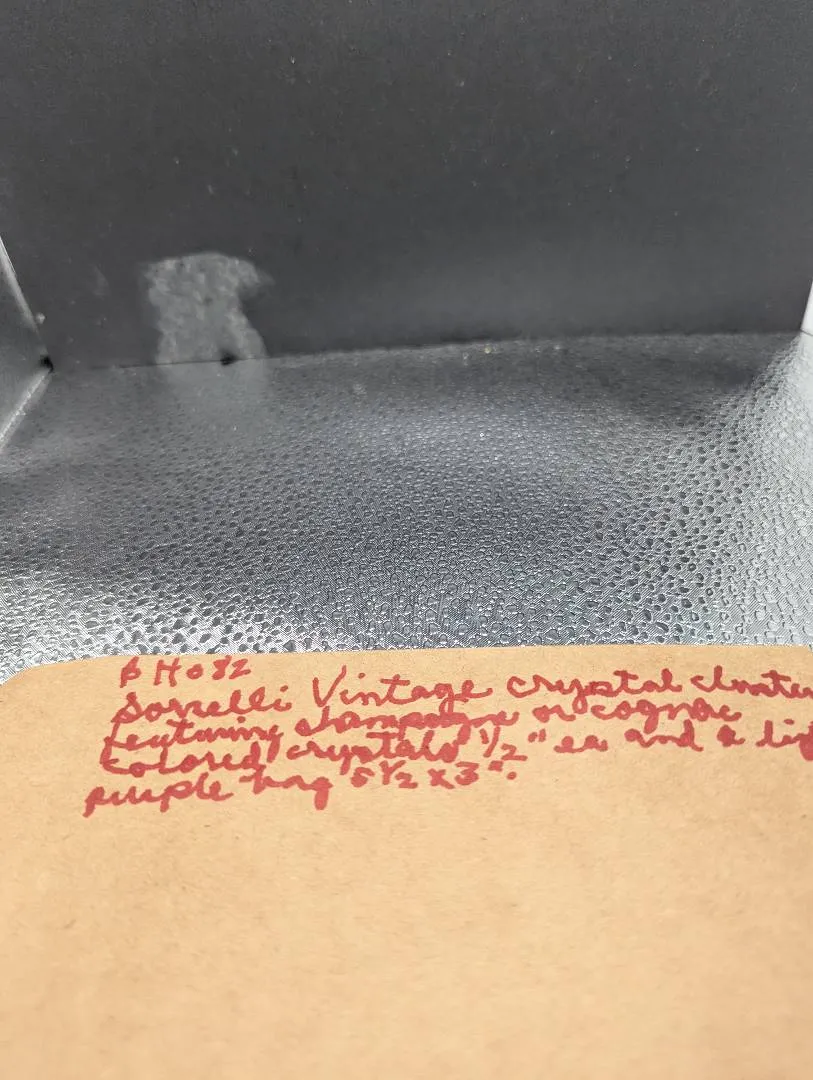 BH082
Sorrelli Vintage crystal cluster
featuring champagne or cognac
colored crystals 1/2" ea and a
purple bag 5 1/2 x 3".